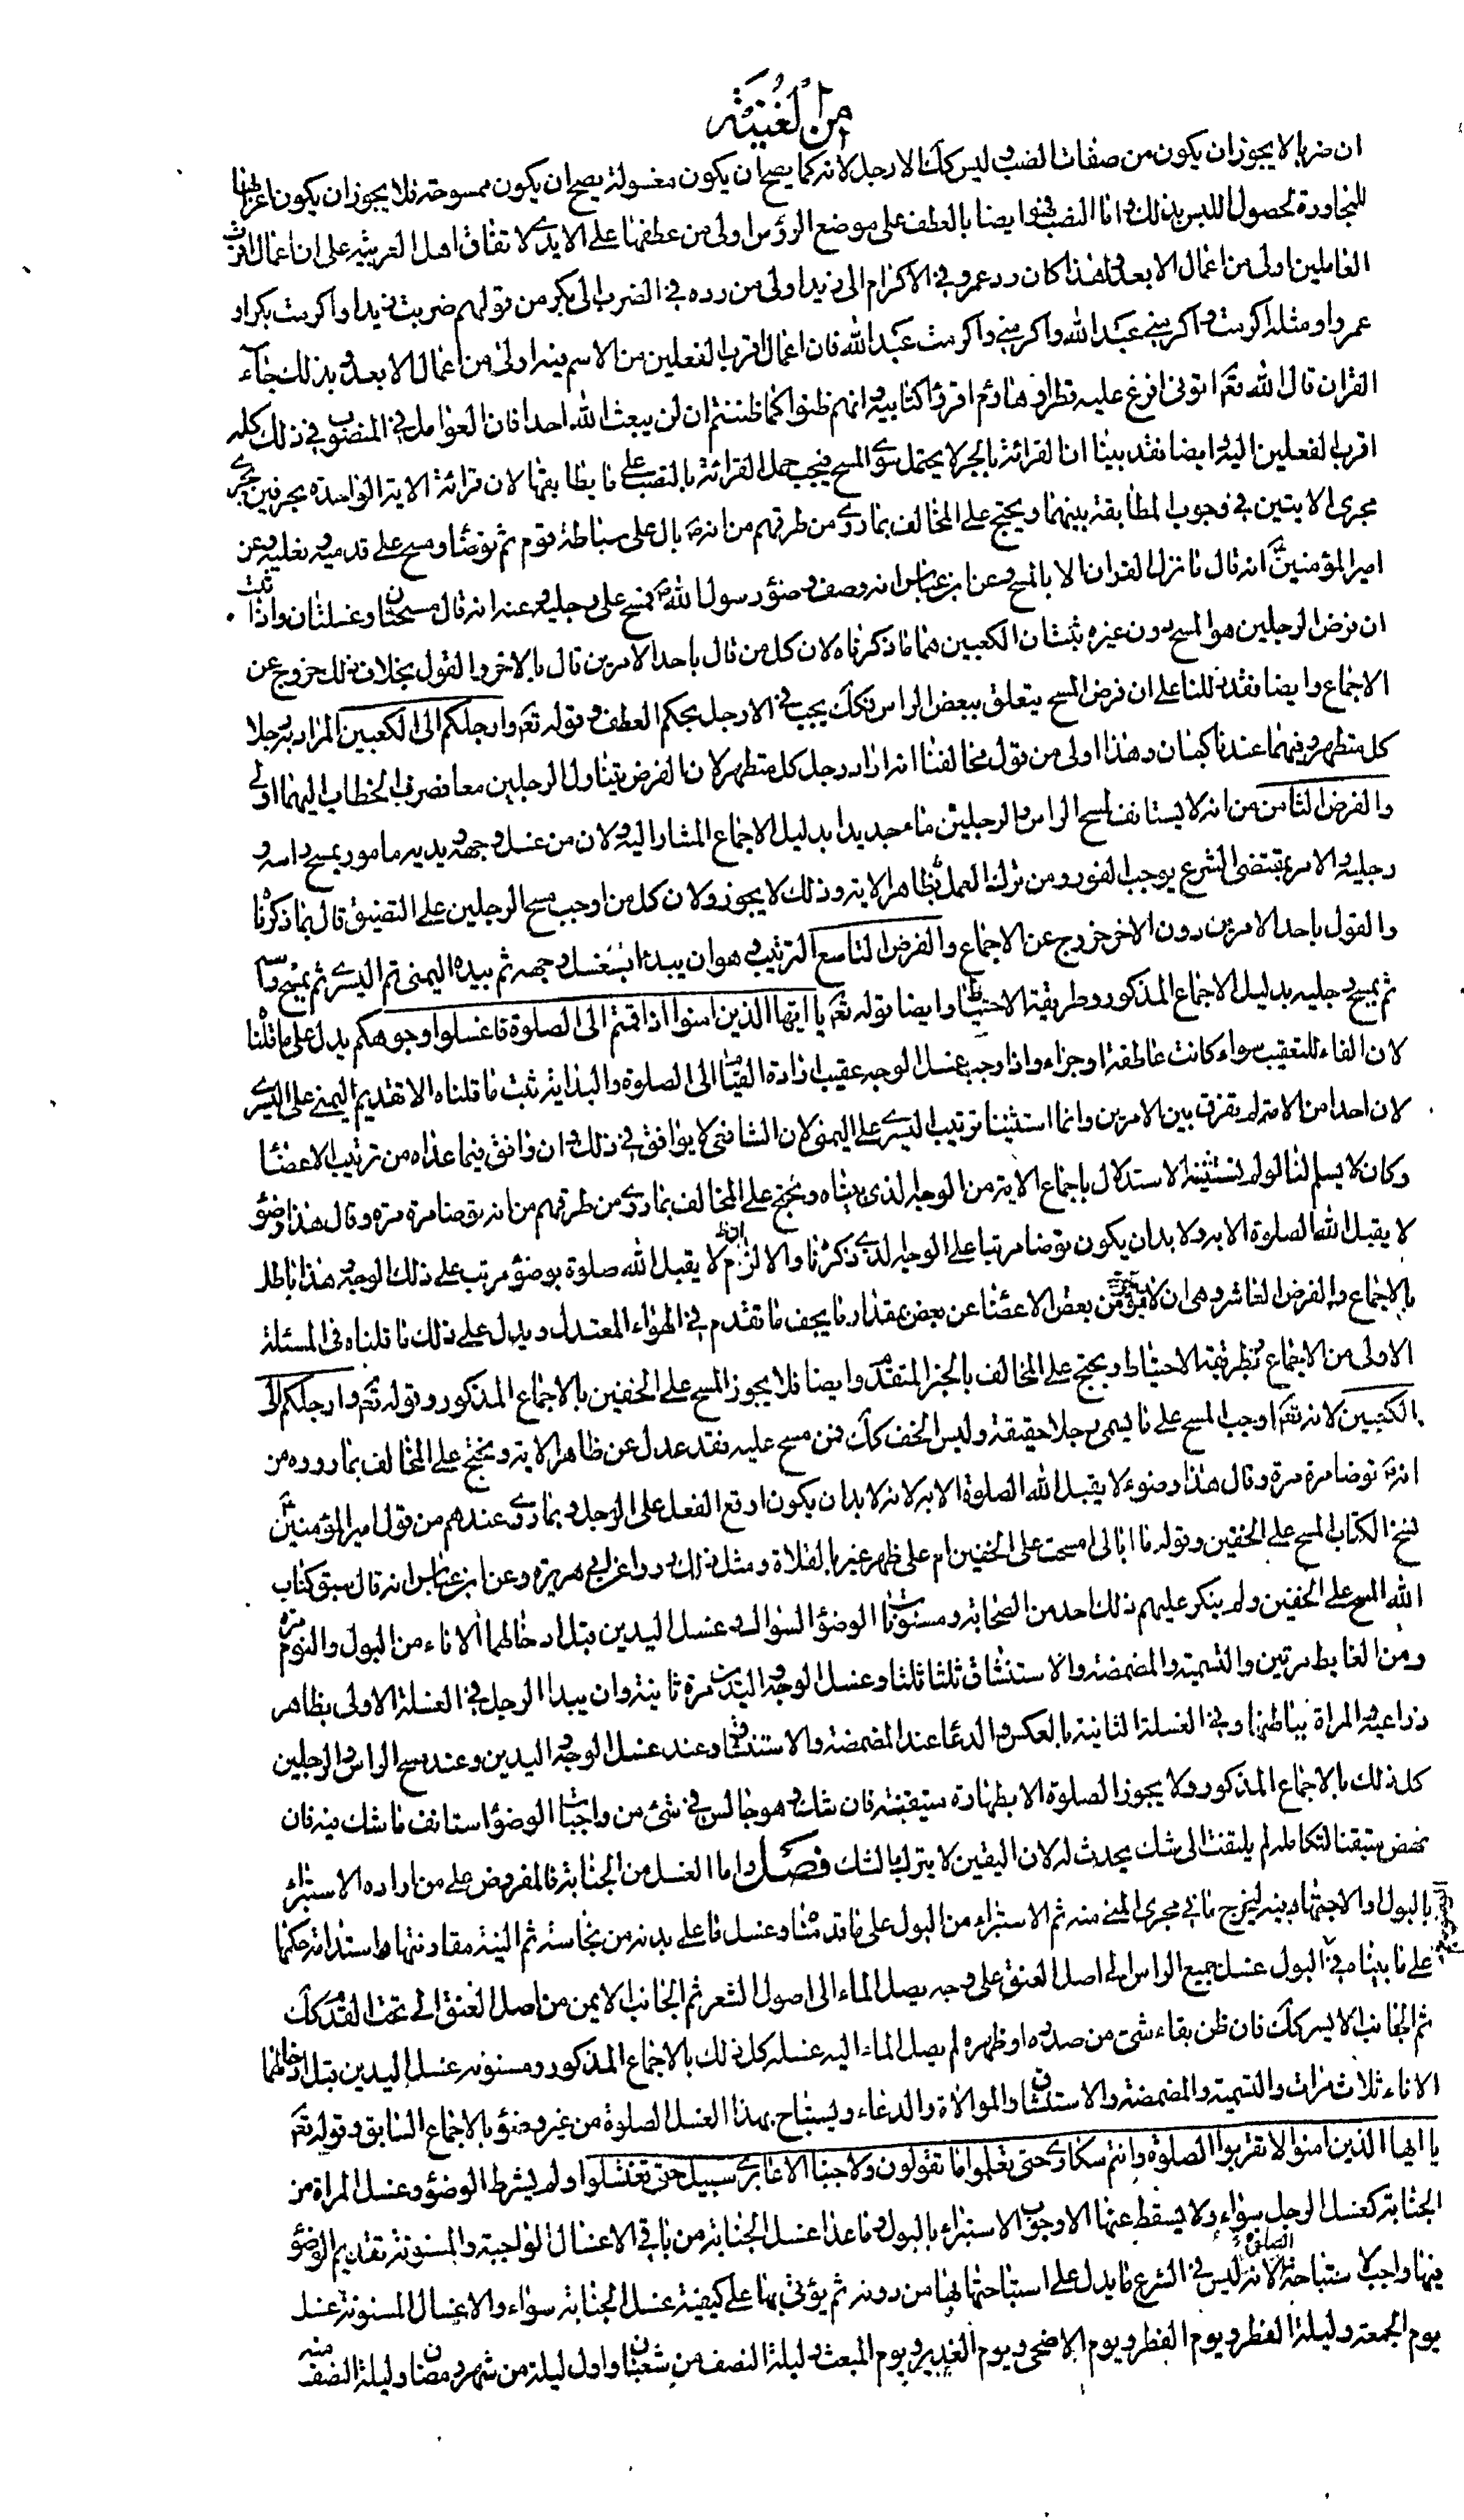 من الغنية
ان ضربا لا يجوز ان يكون من صفات الضب وليس كك الارجل لانه كما يصح ان يكون مغسولة يصح ان يكون ممسوحة فلا يجوز ان يكون اعرابها
للمجاورة لحصول اللبس بذلك واما النصب فهو ايضا بالعطف على موضع الرؤس اولى من عطفها على الايدي لاتفاق اهل العربية على ان اعمال اقرب
العاملين اولى من اعمال الابعد ولهذا كان رد عمرو في الاكرام الى زيد اولى من رده في الضرب الى بكر من قولهم ضربت زيدا واكرمت بكرا و
عمروا ومثله اكرمت واكرمنى عبد الله واكرمنى واكرمت عبد الله فان اعمال اقرب الفعلين من الاسم فيه اولى من اعمال الابعد وبذلك جاء
القران قال الله تع اتونى افرغ عليه قطرا وهاؤم اقرؤا كتابيه وانهم ظنوا كما ظننتم ان لن يبعث الله احدا فان العوامل في المنصوب في ذلك كله
اقرب الفعلين اليه وايضا فقد بينا ان القرائة بالجر لا يحتمل سوى المسح فيجب حمل القرائة بالنصب على ما يطابقها لان قرائة الاية الواحدة بحرفين يجرى
مجرى الايتين في وجوب المطابقة بينهما ويحتج على المخالف بما روى من طرقهم من انه ص بال على سباطة قوم ثم توضأ ومسح على قدميه ونعليه وعن
امير المؤمنين ع انه قال ما نزل القران الا بالمسح وعن ابن عباس انه وصف وضؤ رسول الله ص فمسح على رجليه وعنه انه قال مسحتان وغسلتان واذا ثبت
ان فرض الرجلين هو المسح دون غيره ثبت ان الكعبين هما ما ذكرناه لان كل من قال باحد الامرين قال بالاخر والقول بخلاف ذلك خروج عن
الاجماع وايضا فقد دللنا على ان فرض المسح يتعلق ببعض الراس فكك يجب في الارجل بحكم العطف وقوله تع وارجلكم الى الكعبين المراد به رجلا
كل متطهر وفيهما عندنا كعبان وهذا اولى من قول مخالفنا انه اراد رجل كل متطهر لان الفرض يتناول الرجلين معا فصرف الخطاب اليهما اولى
والفرض الثامن من انه لا يستانف لمسح الراس والرجلين ماء جديدا بدليل الاجماع المشار اليه ولان من غسل وجهه ويديه مامور بمسح راسه و
رجليه والامر بمقتضى الشرع يوجب الفور ومن ترك العمل بظاهر الاية وذلك لا يجوز ولان كل من اوجب مسح الرجلين على التضييق قال بما ذكرناه
والقول باحد الامرين دون الاخر خروج عن الاجماع والفرض التاسع الترتيب وهو ان يبدء بغسل وجهه ثم بيده اليمنى ثم اليسرى ثم يمسح راسه
ثم يمسح رجليه بدليل الاجماع المذكور وطريقة الاحتياط وايضا قوله تع يا ايها الذين امنوا اذا قمتم الى الصلوة فاغسلوا وجوهكم يدل على ما قلناه
لان الفاء للتعقيب سواء كانت عاطفة او جزاء واذا وجب غسل الوجه عقيب ارادة القيام الى الصلوة والبداية به ثبت ما قلناه الا تقديم اليمنى على اليسرى
لان احدا من الامة لم يفرق بين الامرين وانما استثنينا ترتيب اليسرى على اليمنى لان الشافعي لا يوافق في ذلك وان وافق فيما عداه من ترتيب الاعضاء
وكان لا يسلم لنا لو لم نستثنه الاستدلال باجماع الاية من الوجه الذى بيناه ونحتج على المخالف بما روى من طرقهم من انه ص توضا مرة مرة وقال هذا وضؤ
لا يقبل الله الصلوة الا به ولا بد ان يكون توضا مرتبا على الوجه الذى ذكرنا والا لزم ان لا يقبل الله صلوة بوضؤ مرتب على ذلك الوجه وهذا باطل
بالاجماع والفرض العاشر وهى ان لا يفرق من بعض الاعضاء عن بعض بمقدار ما يجف ما تقدم في الهواء المعتدل ويدل على ذلك ما قلناه في المسئلة
الاولى من الاجماع وطريقة الاحتياط ويحتج على المخالف بالخبر المتقدم وايضا فلا يجوز المسح على الخفين بالاجماع المذكور وقوله تع وارجلكم الى
الكعبين لانه تع اوجب المسح على ما يسمى رجلا حقيقة وليس الخف كك فمن مسح عليه فقد عدل عن ظاهر الاية ويحتج على المخالف بما رووه من
انه ص توضا مرة مرة وقال هذا وضوء لا يقبل الله الصلوة الا به لانه لا بد ان يكون اوقع الفعل على الرجل وبما روى عندهم من قول امير المؤمنين ع
نسخ الكتاب المسح على الخفين وقوله ما ابالى امسحت على الخفين ام على ظهر عير بالفلاة ومثل ذلك رووا عن ابى هريرة وعن ابن عباس انه قال سبق كتاب
الله المسح على الخفين ولم ينكر عليهم ذلك احد من الصحابة ومسنونات الوضؤ السواك وغسل اليدين قبل ادخالهما الاناء من البول والنوم مرة
ومن الغايط مرتين والتسمية والمضمضة والاستنشاق ثلثا ثلثا وغسل الوجه واليدين مرة ثانية وان يبدا الرجل في الغسلة الاولى بظاهر
ذراعيه والمراة بباطنهما وفي الغسلة الثانية بالعكس والدعا عند المضمضة والاستنشاق وعند غسل الوجه واليدين وعند مسح الراس والرجلين
كل ذلك بالاجماع المذكور ولا يجوز الصلوة الا بطهارة متيقنة فان شك وهو جالس في شئ من واجبات الوضؤ استانف ما شك فيه فان
نهض متيقنا لتكامله لم يلتفت الى شك يحدث له لان اليقين لا يترك بالشك فصل واما الغسل من الجنابة فالمفروض على من اراده الاستبراء
بالبول والاجتهاد فيه ليخرج ما في مجرى المنى منه ثم الاستبراء من البول على ما قدمناه وغسل ما على بدنه من نجاسة ثم النية ومقارنتها واستدامة حكمها
على ما بيناه في البول غسل جميع الراس الى اصل العنق على وجه يصل الماء الى اصول الشعر ثم الجانب الايمن من اصل العنق الى تحت القدم كك
ثم الجانب الايسر كك فان ظن بقاء شئ من صدره او ظهره لم يصل الماء اليه غسله كل ذلك بالاجماع المذكور ومسنونه غسل اليدين قبل ادخالهما
الاناء ثلاث مرات والتسمية والمضمضة والاستنشاق والموالاة والدعاء ويستباح بهذا الغسل الصلوة من غير وضؤ بالاجماع السابق وقوله تع
يا ايها الذين امنوا لا تقربوا الصلوة وانتم سكارى حتى تعلموا ما تقولون ولا جنبا الا عابرى سبيل حتى تغتسلوا ولم يشرط الوضؤ وغسل المراة من
الجنابة كغسل الرجل سواء ولا يسقط عنها الا وجوب الاستبراء بالبول وما عدا غسل الجنابة من باقي الاغسال الواجبة والمسنونة تقديم الوضؤ
فيها واجب لاستباحة الصلوة لانه ليس في الشرع ما يدل على استباحتها بها من دونه ثم يؤتى بها على كيفية غسل الجنابة سواء والاغسال المسنونة غسل
يوم الجمعة وليلة الفطر ويوم الفطر ويوم الاضحى ويوم الغدير ويوم المبعث وليلة النصف من شعبان واول ليلة من شهر رمضان وليلة النصف منه